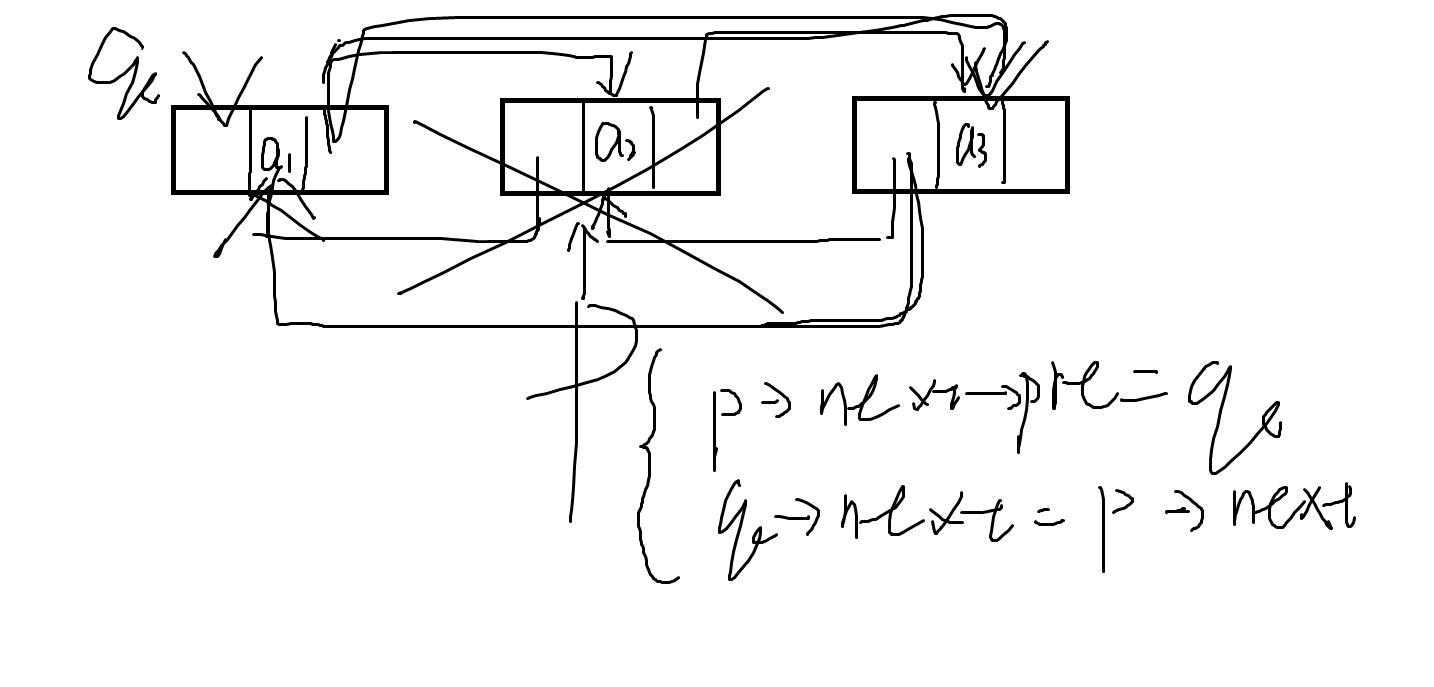 q
a1 a2 a3
p
p->next->pre=q
q->next=p->next